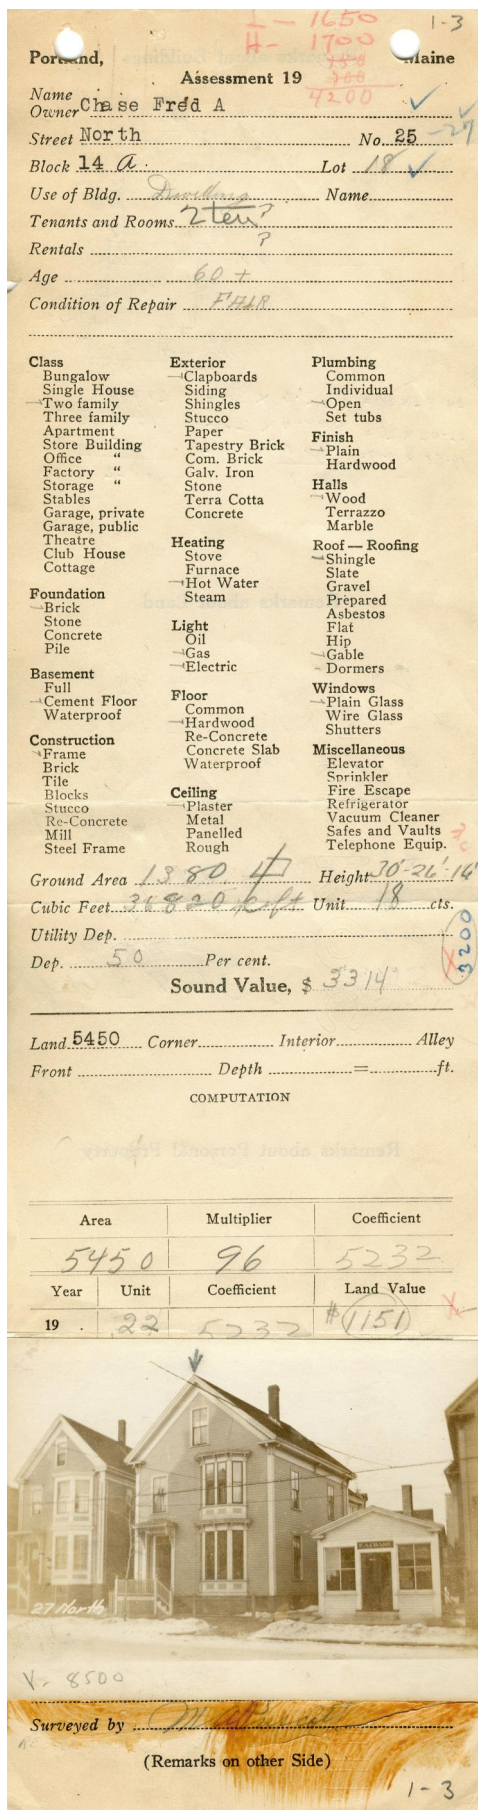 I - 1650
H - 1700
4200
1-3
Portland, Maine
Assessment 19
Name
Owner Chase Fred A
Street North No. 25 -27
Block 14 A. Lot 18
Use of Bldg. Dwelling Name
Tenants and Rooms 2 ten ?
Rentals ?
Age 60 +
Condition of Repair FAIR
Class
Bungalow
Single House
Two family
Three family
Apartment
Store Building
Office "
Factory "
Storage "
Stables
Garage, private
Garage, public
Theatre
Club House
Cottage
Foundation
Brick
Stone
Concrete
Pile
Basement
Full
Cement Floor
Waterproof
Construction
Frame
Brick
Tile
Blocks
Stucco
Re-Concrete
Mill
Steel Frame
Exterior
Clapboards
Siding
Shingles
Stucco
Paper
Tapestry Brick
Com. Brick
Galv. Iron
Stone
Terra Cotta
Concrete
Heating
Stove
Furnace
Hot Water
Steam
Light
Oil
Gas
Electric
Floor
Common
Hardwood
Re-Concrete
Concrete Slab
Waterproof
Ceiling
Plaster
Metal
Panelled
Rough
Plumbing
Common
Individual
Open
Set tubs
Finish
Plain
Hardwood
Halls
Wood
Terrazzo
Marble
Roof — Roofing
Shingle
Slate
Gravel
Prepared
Asbestos
Flat
Hip
Gable
Dormers
Windows
Plain Glass
Wire Glass
Shutters
Miscellaneous
Elevator
Sprinkler
Fire Escape
Refrigerator
Vacuum Cleaner
Safes and Vaults
Telephone Equip.
Ground Area 1380 Height 30'-26'-16'
Cubic Feet 36820 c ft Unit 18 cts.
Utility Dep.
3200
Dep. 50 Per cent.
Sound Value, $ 3314
Land 5450 Corner Interior Alley
Front Depth = ft.
COMPUTATION
Remarks about Personal Property
Area Multiplier Coefficient
5450 96 5232
Year Unit Coefficient Land Value
19 . 22 5232 $1151
27 North
V- 8500
Surveyed by
(Remarks on other Side)
1-3